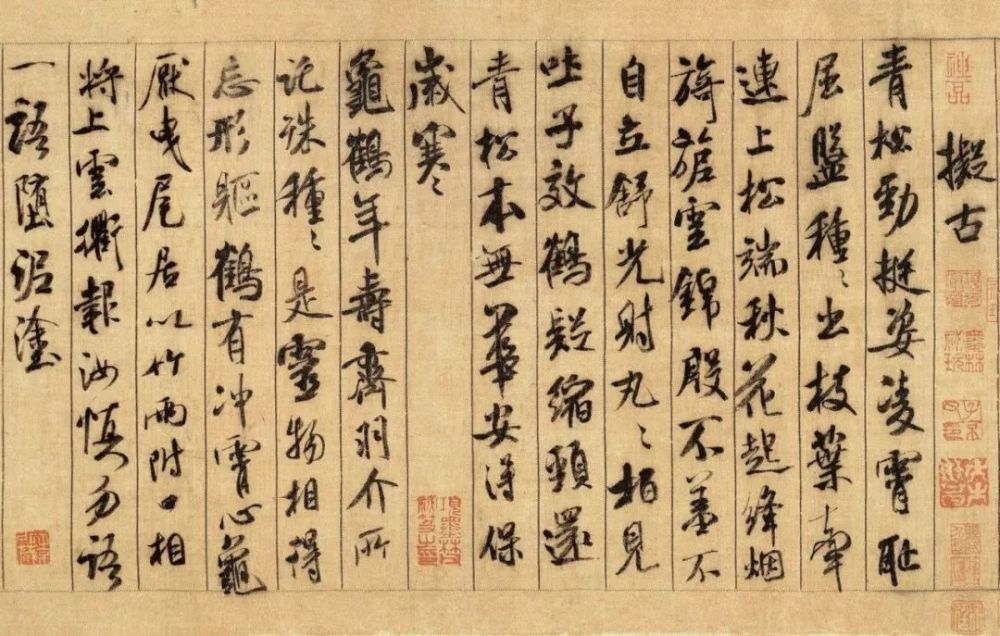 神品
擬古
青松勁挺姿凌霄恥
屈盤種〻出枝葉牽
連上松端秋花起絳烟
旖旎雲錦殷不羞不
自立舒光射丸〻柏見
吐子效鶴疑縮頸還
青松本無華安得保
歲寒〻
龜鶴年壽齊羽介所
託殊種〻是靈物相得
忘形軀鶴有冲霄心龜
厭曳尾居以竹兩附口相
將上雲衢報汝慎勿語
一語墮泥塗